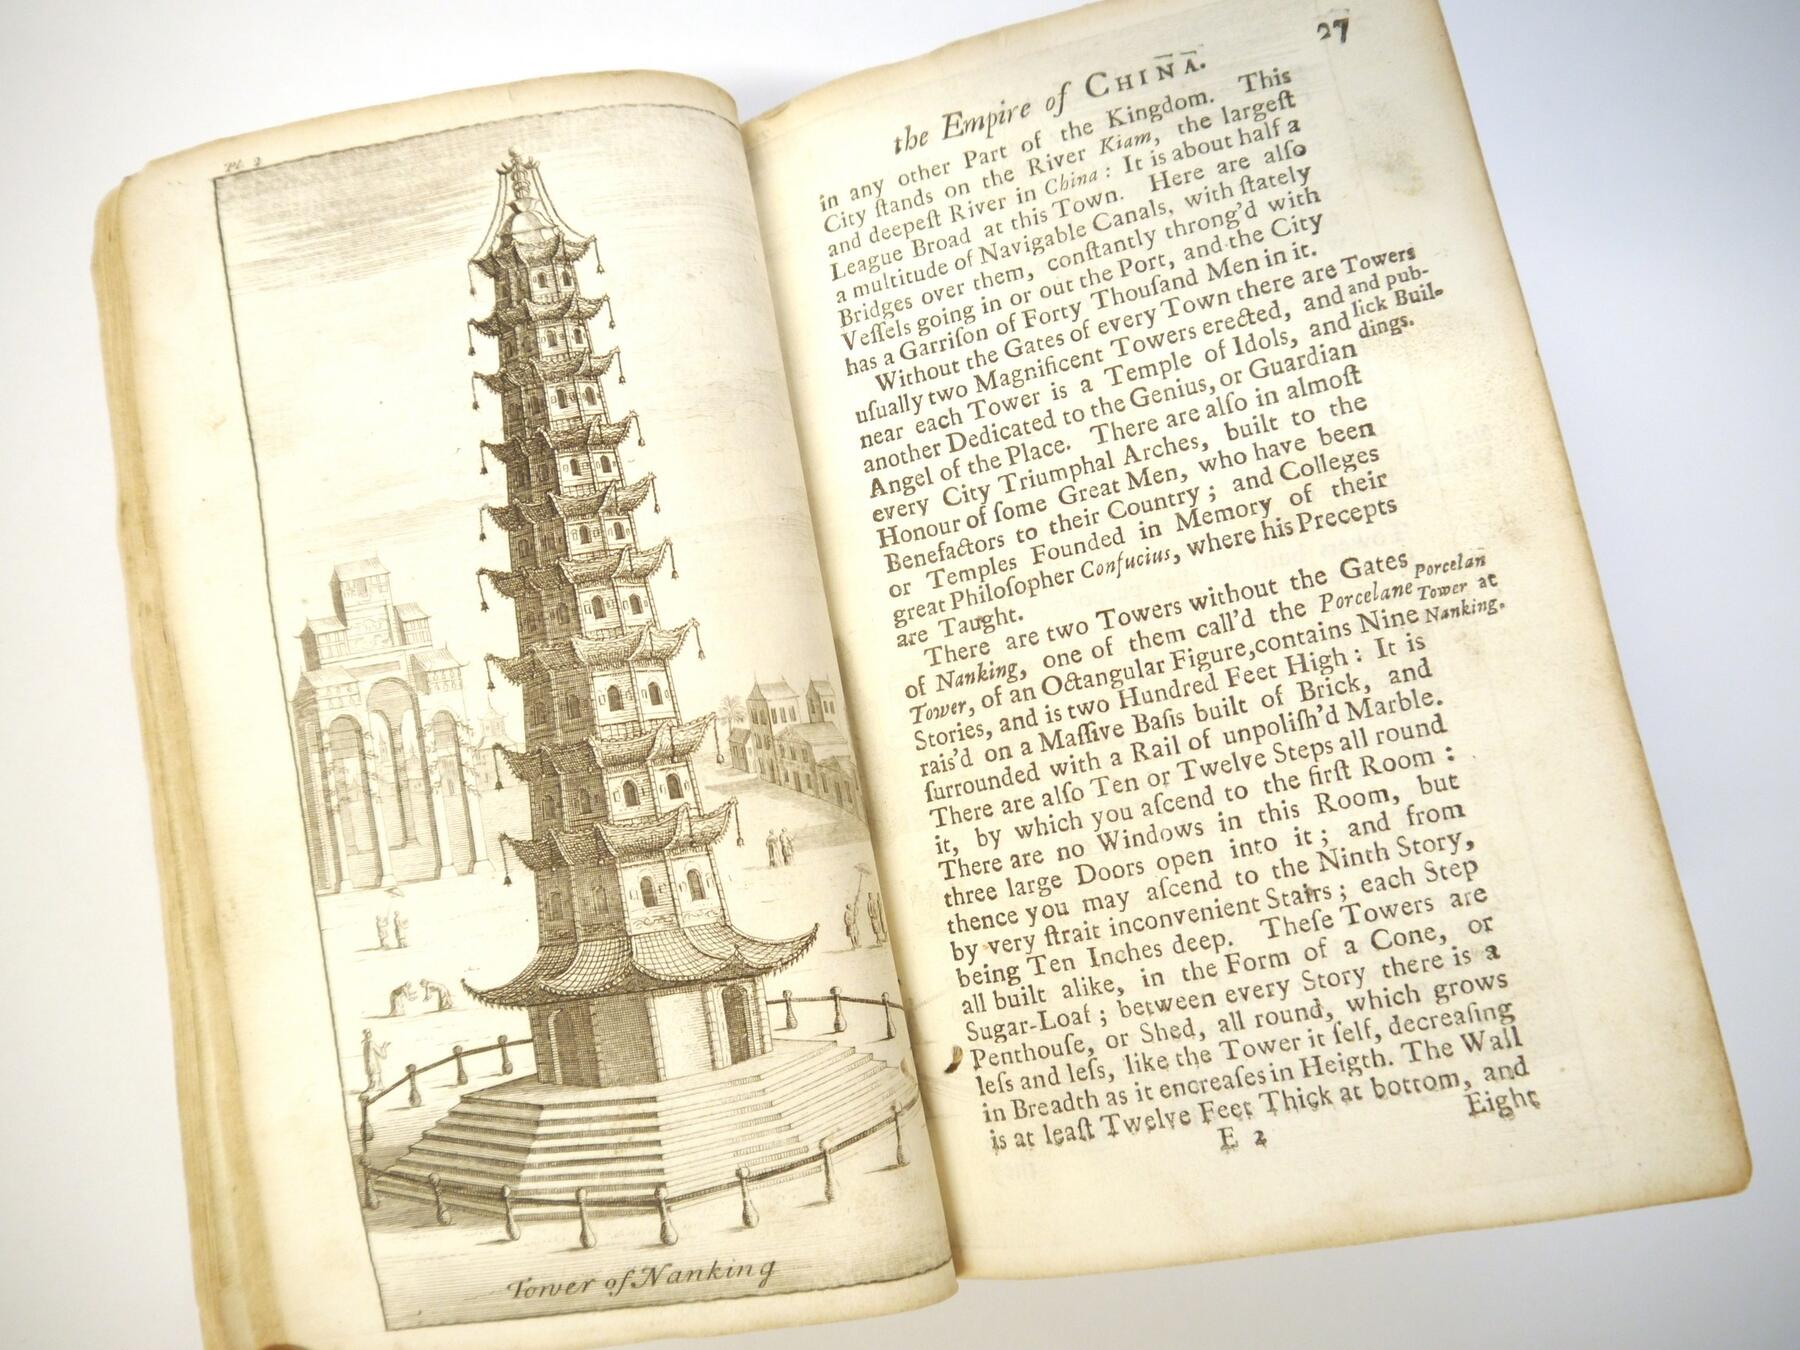 Pl. 2
Tower of Nanking
27
the Empire of CHINA.
in any other Part of the Kingdom. This
City ſtands on the River Kiam, the largeſt
and deepeſt River in China : It is about half a
League Broad at this Town. Here are alſo
a multitude of Navigable Canals, with ſtately
Bridges over them, conſtantly throng'd with
Veſſels going in or out the Port, and the City
has a Garriſon of Forty Thouſand Men in it.
Without the Gates of every Town there are
uſually two Magnificent Towers erected, and
near each Tower is a Temple of Idols, and
another Dedicated to the Genius, or Guardian
Angel of the Place. There are alſo in almoſt
every City Triumphal Arches, built to the
Honour of ſome Great Men, who have been
Benefactors to their Country ; and Colleges
or Temples Founded in Memory of their
great Philoſopher Confucius, where his Precepts
are Taught.
Towers
and pub-
lick Buil-
dings.
There are two Towers without the Gates
of Nanking, one of them call'd the Porcelane
Tower, of an Octangular Figure, contains Nine
Stories, and is two Hundred Feet High : It is
rais'd on a Maſſive Baſis built of Brick, and
ſurrounded with a Rail of unpoliſh'd Marble.
There are alſo Ten or Twelve Steps all round
it, by which you aſcend to the firſt Room :
There are no Windows in this Room, but
three large Doors open into it ; and from
thence you may aſcend to the Ninth Story,
by very ſtrait inconvenient Stairs ; each Step
being Ten Inches deep. Theſe Towers are
all built alike, in the Form of a Cone, or
Sugar-Loaf ; between every Story there is a
Penthouſe, or Shed, all round, which grows
leſs and leſs, like the Tower it ſelf, decreaſing
in Breadth as it encreaſes in Heigth. The Wall
is at leaſt Twelve Feet Thick at bottom, and
Porcelan
Tower at
Nanking.
E 2
Eight